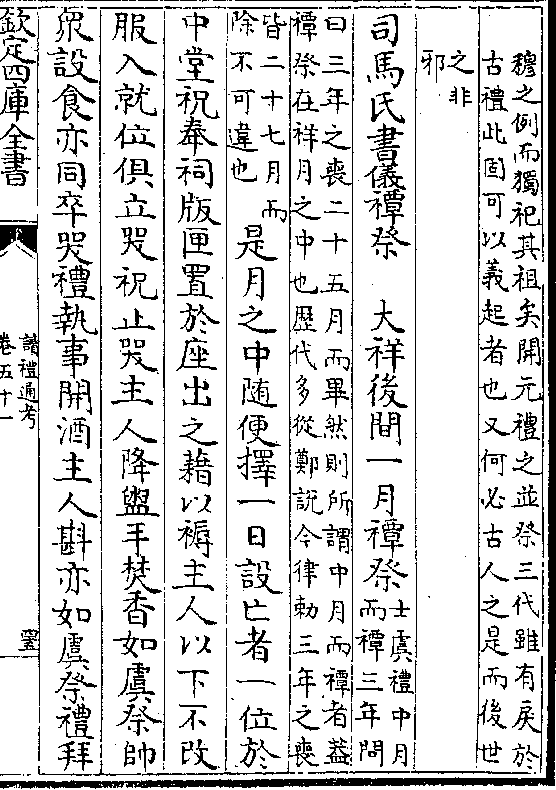 穆之例而獨祀其祖矣開元禮之並祭三代雖有戾於
古禮此固可以義起者也又何必古人之是而後世
之非
邪
司馬氏書儀禫祭　大祥後間一月禫祭
士虞禮中月
而禫三年問
曰三年之喪二十五月而畢然則所謂中月而禫者蓋
禫祭在祥月之中也歴代多從鄭說今律勅三年之喪
皆二十七月而
除不可違也
是月之中随便擇一日設亡者一位於
中堂祝奉祠版匣置於座出之藉以褥主人以下不改
服入就位俱立哭祝止哭主人降盥手焚香如虞祭帥
衆設食亦同卒哭禮執事開酒主人斟亦如虞祭禮拜
欽定四庫全書
讀禮通考
卷五十一